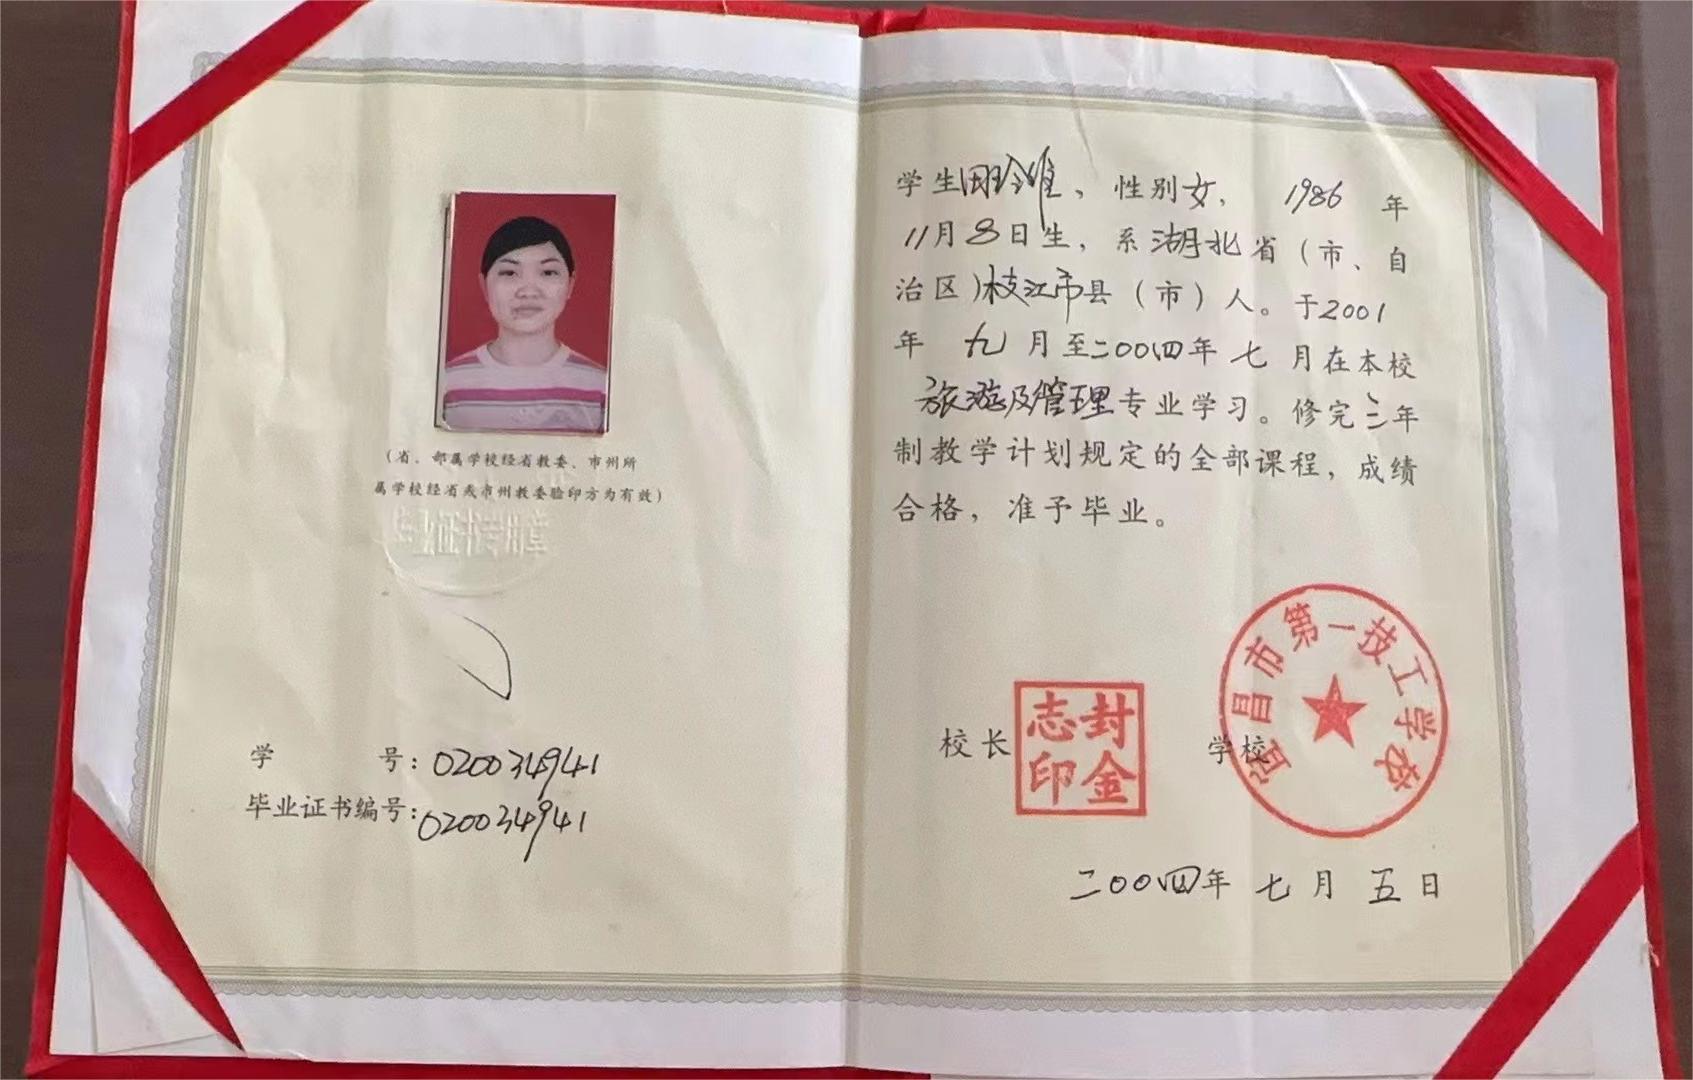 (省、部属学校经省教委、市州所
属学校经省或市州教委验印方为有效)
毕业证书专用章
学 号：020034941
毕业证书编号：020034941
学生田玲维，性别女，1986年
11月8日生，系湖北省（市、自
治区）枝江市县（市）人。于2001
年 九 月至二00四年 七 月在本校
旅游及管理专业学习。修完三年
制教学计划规定的全部课程，成绩
合格，准予毕业。
校长
封金志印
学校
宜昌市第一技工学校
二00四年 七 月 五 日